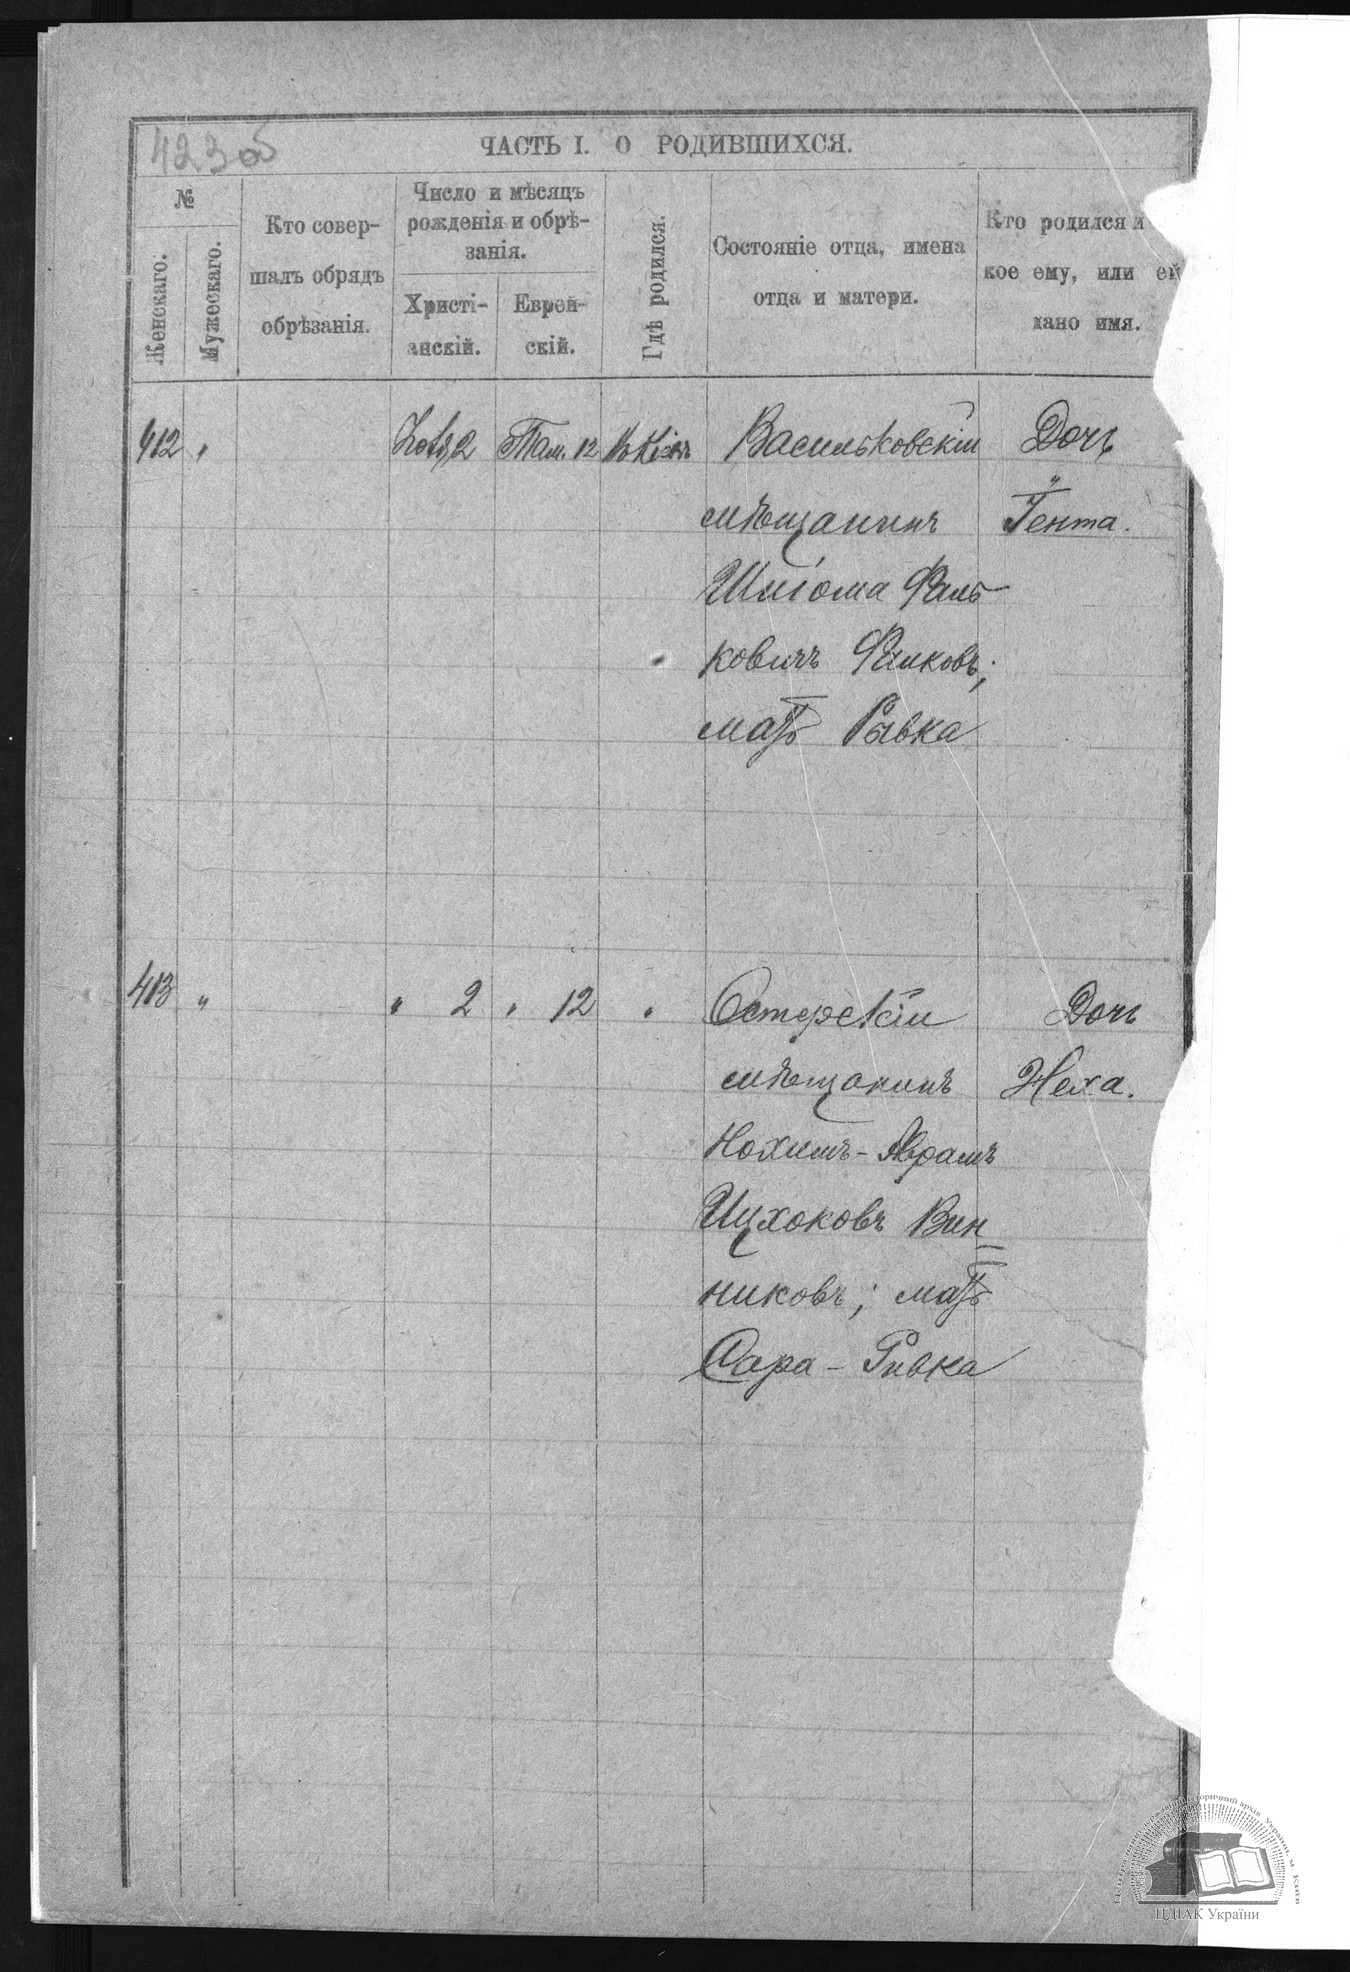 423об
ЧАСТЬ I. О РОДИВШИХСЯ.
№
Женскаго.
Мужескаго.
Кто совер-
шалъ обрядъ
обрѣзанія.
Число и мѣсяцъ
рожденія и обрѣ-
занія.
Христі-
анскій.
Еврей-
скій.
Гдѣ родился.
Состояніе отца, имена
отца и матери.
Кто родился и
кое ему, или ей
дано имя.
412 " 2 Там. 12 Въ Кіевѣ Васильковскій Дочь
мѣщанинъ Гента.
Шліома Фаль-
ковичъ Фалковъ;
мать Рывка
413 " " 2 " 12 " Остерскій Дочь
мѣщанинъ Неха.
Нохимъ-Аврамъ
Ицхоковъ Вин-
никовъ; мать
Сара-Ривка
ЦДІАК України